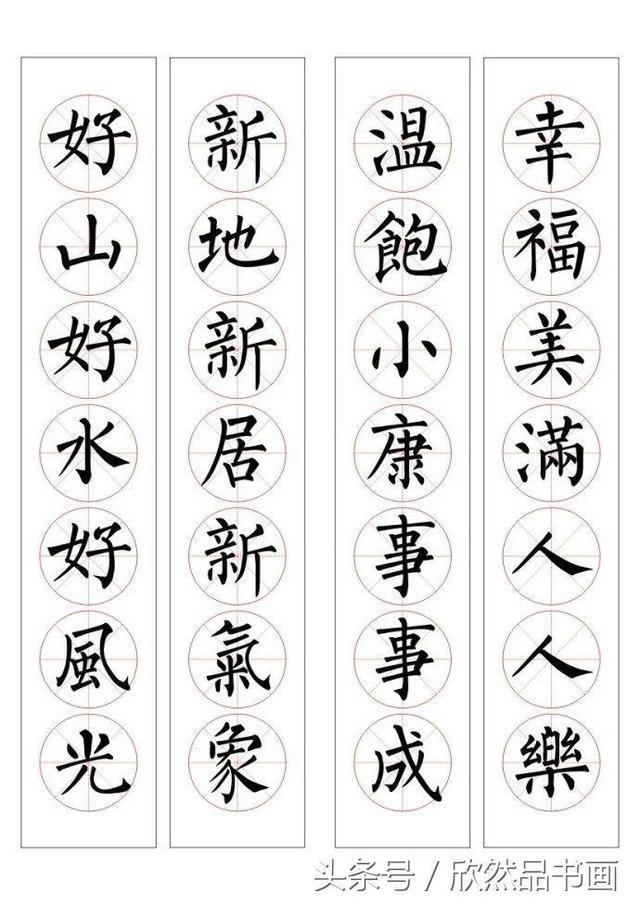 幸福美滿人人樂
溫飽小康事事成
新地新居新氣象
好山好水好風光
头条号 / 欣然品书画